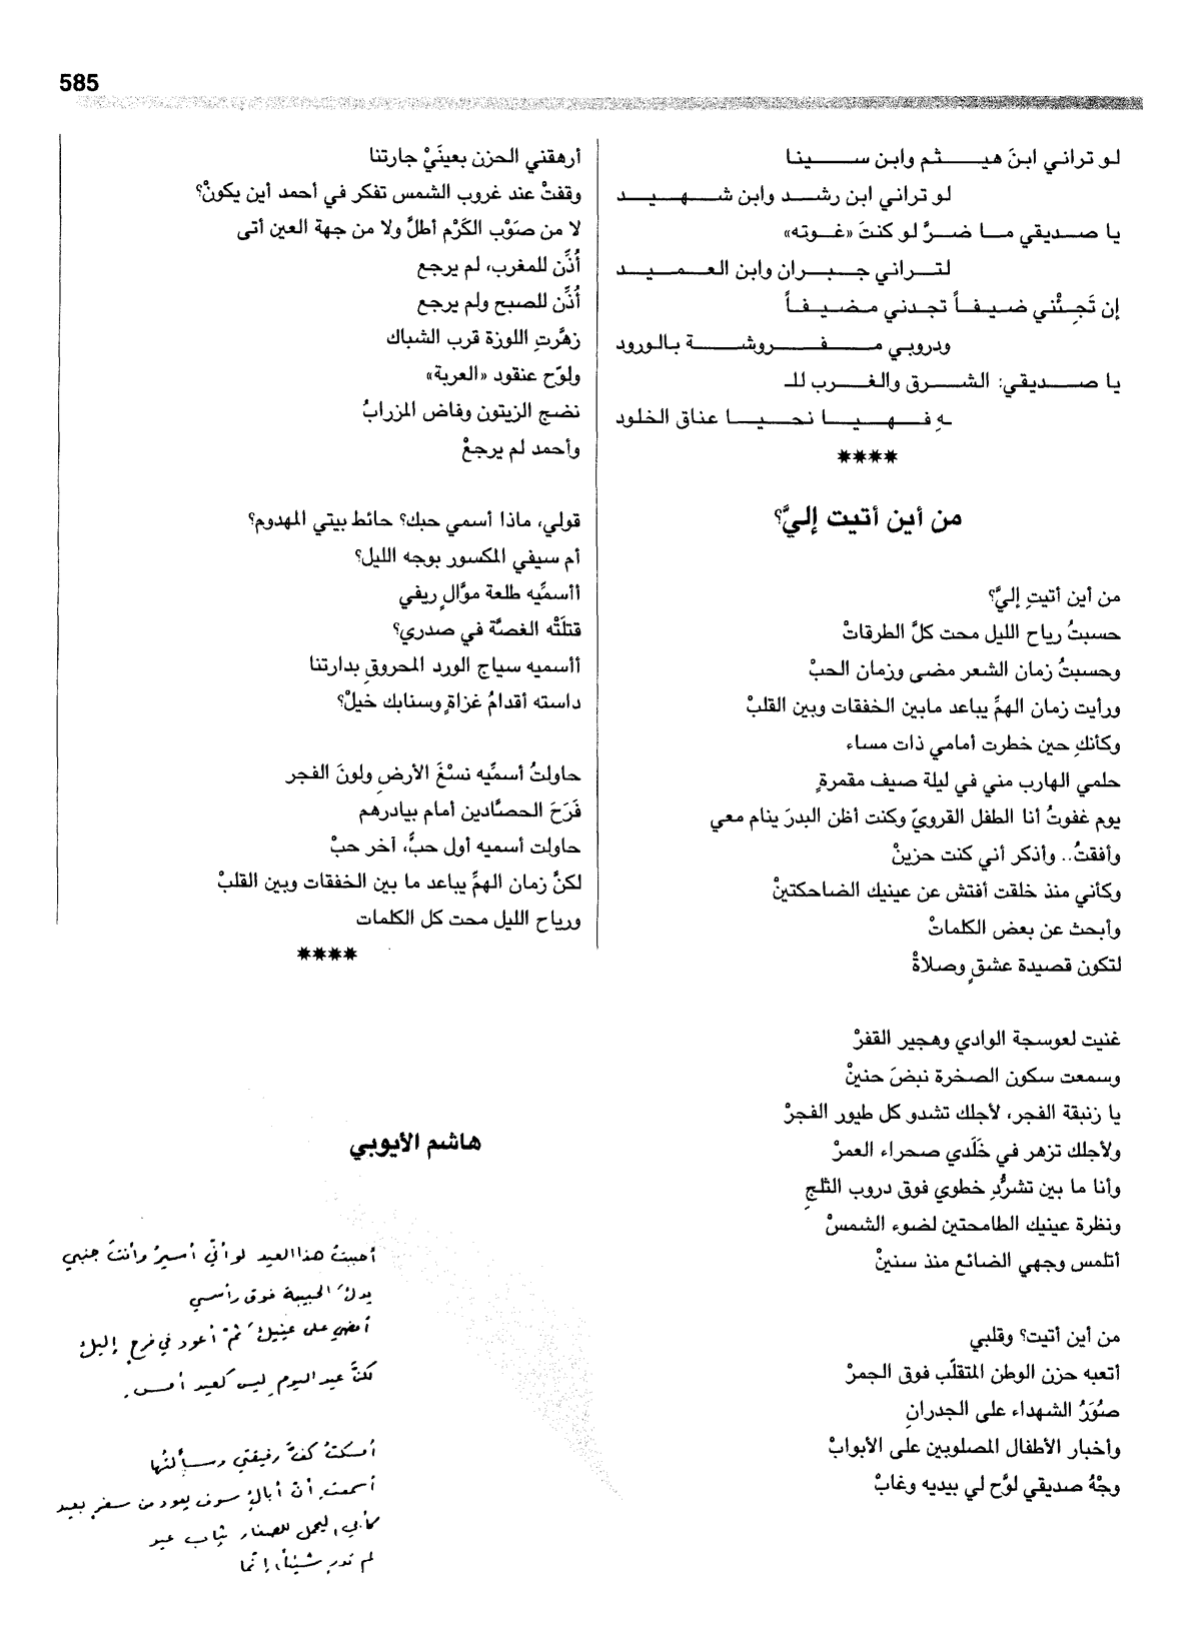 585
لو تراني ابنَ هيثم وابن سينا
لو تراني ابن رشد وابن شهيد
يا صديقي ما ضرَّ لو كنتَ «غوته»
لتراني جبران وابن العميد
إن تَجِئْني ضيفاً تجدني مضيفاً
ودروبي مفروشة بالورود
يا صديقي: الشرق والغرب للـ
ـهِ فهيا نحيا عناق الخلود
****
من أين أتيت إليَّ؟
من أين أتيتِ إليَّ؟
حسبتُ رياح الليل محت كلَّ الطرقاتْ
وحسبتُ زمان الشعر مضى وزمان الحبْ
ورأيت زمان الهمِّ يباعد مابين الخفقات وبين القلبْ
وكأنكِ حين خطرت أمامي ذات مساء
حلمي الهارب مني في ليلة صيف مقمرةٍ
يوم غفوتُ أنا الطفل القرويّ وكنت أظن البدرَ ينام معي
وأفقتُ.. وأذكر أني كنت حزينْ
وكأني منذ خلقت أفتش عن عينيك الضاحكتينْ
وأبحث عن بعض الكلماتْ
لتكون قصيدة عشقٍ وصلاةْ
غنيت لعوسجة الوادي وهجير القفرْ
وسمعت سكون الصخرة نبضَ حنينْ
يا زنبقة الفجر، لأجلك تشدو كل طيور الفجرْ
ولأجلك تزهر في خَلَدي صحراء العمرْ
وأنا ما بين تشرُّدِ خطوي فوق دروب الثلجِ
ونظرة عينيك الطامحتين لضوء الشمسْ
أتلمس وجهي الضائع منذ سنينْ
من أين أتيت؟ وقلبي
أتعبه حزن الوطن المتقلّب فوق الجمرْ
صُوَرُ الشهداء على الجدرانِ
وأخبار الأطفال المصلوبين على الأبوابْ
وجْهُ صديقي لوَّح لي بيديه وغابْ
أرهقني الحزن بعينَيْ جارتنا
وقفتْ عند غروب الشمس تفكر في أحمد أين يكونْ؟
لا من صَوْب الكَرْم أطلَّ ولا من جهة العين أتى
أُذِّن للمغرب، لم يرجع
أُذِّن للصبح ولم يرجع
زهَّرتِ اللوزة قرب الشباك
ولوّح عنقود «العربة»
نضج الزيتون وفاض المزرابُ
وأحمد لم يرجعْ
قولي، ماذا أسمي حبك؟ حائط بيتي المهدوم؟
أم سيفي المكسور بوجه الليل؟
أأسمِّيه طلعة موَّالٍ ريفي
قتلَتْه الغصَّة في صدري؟
أأسميه سياج الورد المحروقِ بدارتنا
داسته أقدامُ غزاةٍ وسنابك خيلْ؟
حاولتُ أسمِّيه نسْغَ الأرضِ ولونَ الفجر
فَرَحَ الحصَّادين أمام بيادرهم
حاولت أسميه أول حبٍّ، آخر حبْ
لكنَّ زمان الهمِّ يباعد ما بين الخفقات وبين القلبْ
ورياح الليل محت كل الكلمات
****
هاشم الأيوبي
أحببتُ هذا العيد لو أنّي أسيرُ وأنتَ جنبي
يدكَ الحبيبة فوق رأسي
أمضي على عينيكَ ثمّ أعود في فرحٍ إليك
لكنَّ عيد اليوم ليس كعيد أمس.
أمسكتُ كفَّ رفيقتي وسألتُها
أسمعتِ أنّ أباكِ سوف يعود من سفرٍ بعيد
كأبي، ليحمل للصغار ثياب عيد
لم تدرِ شيئاً، إنّما